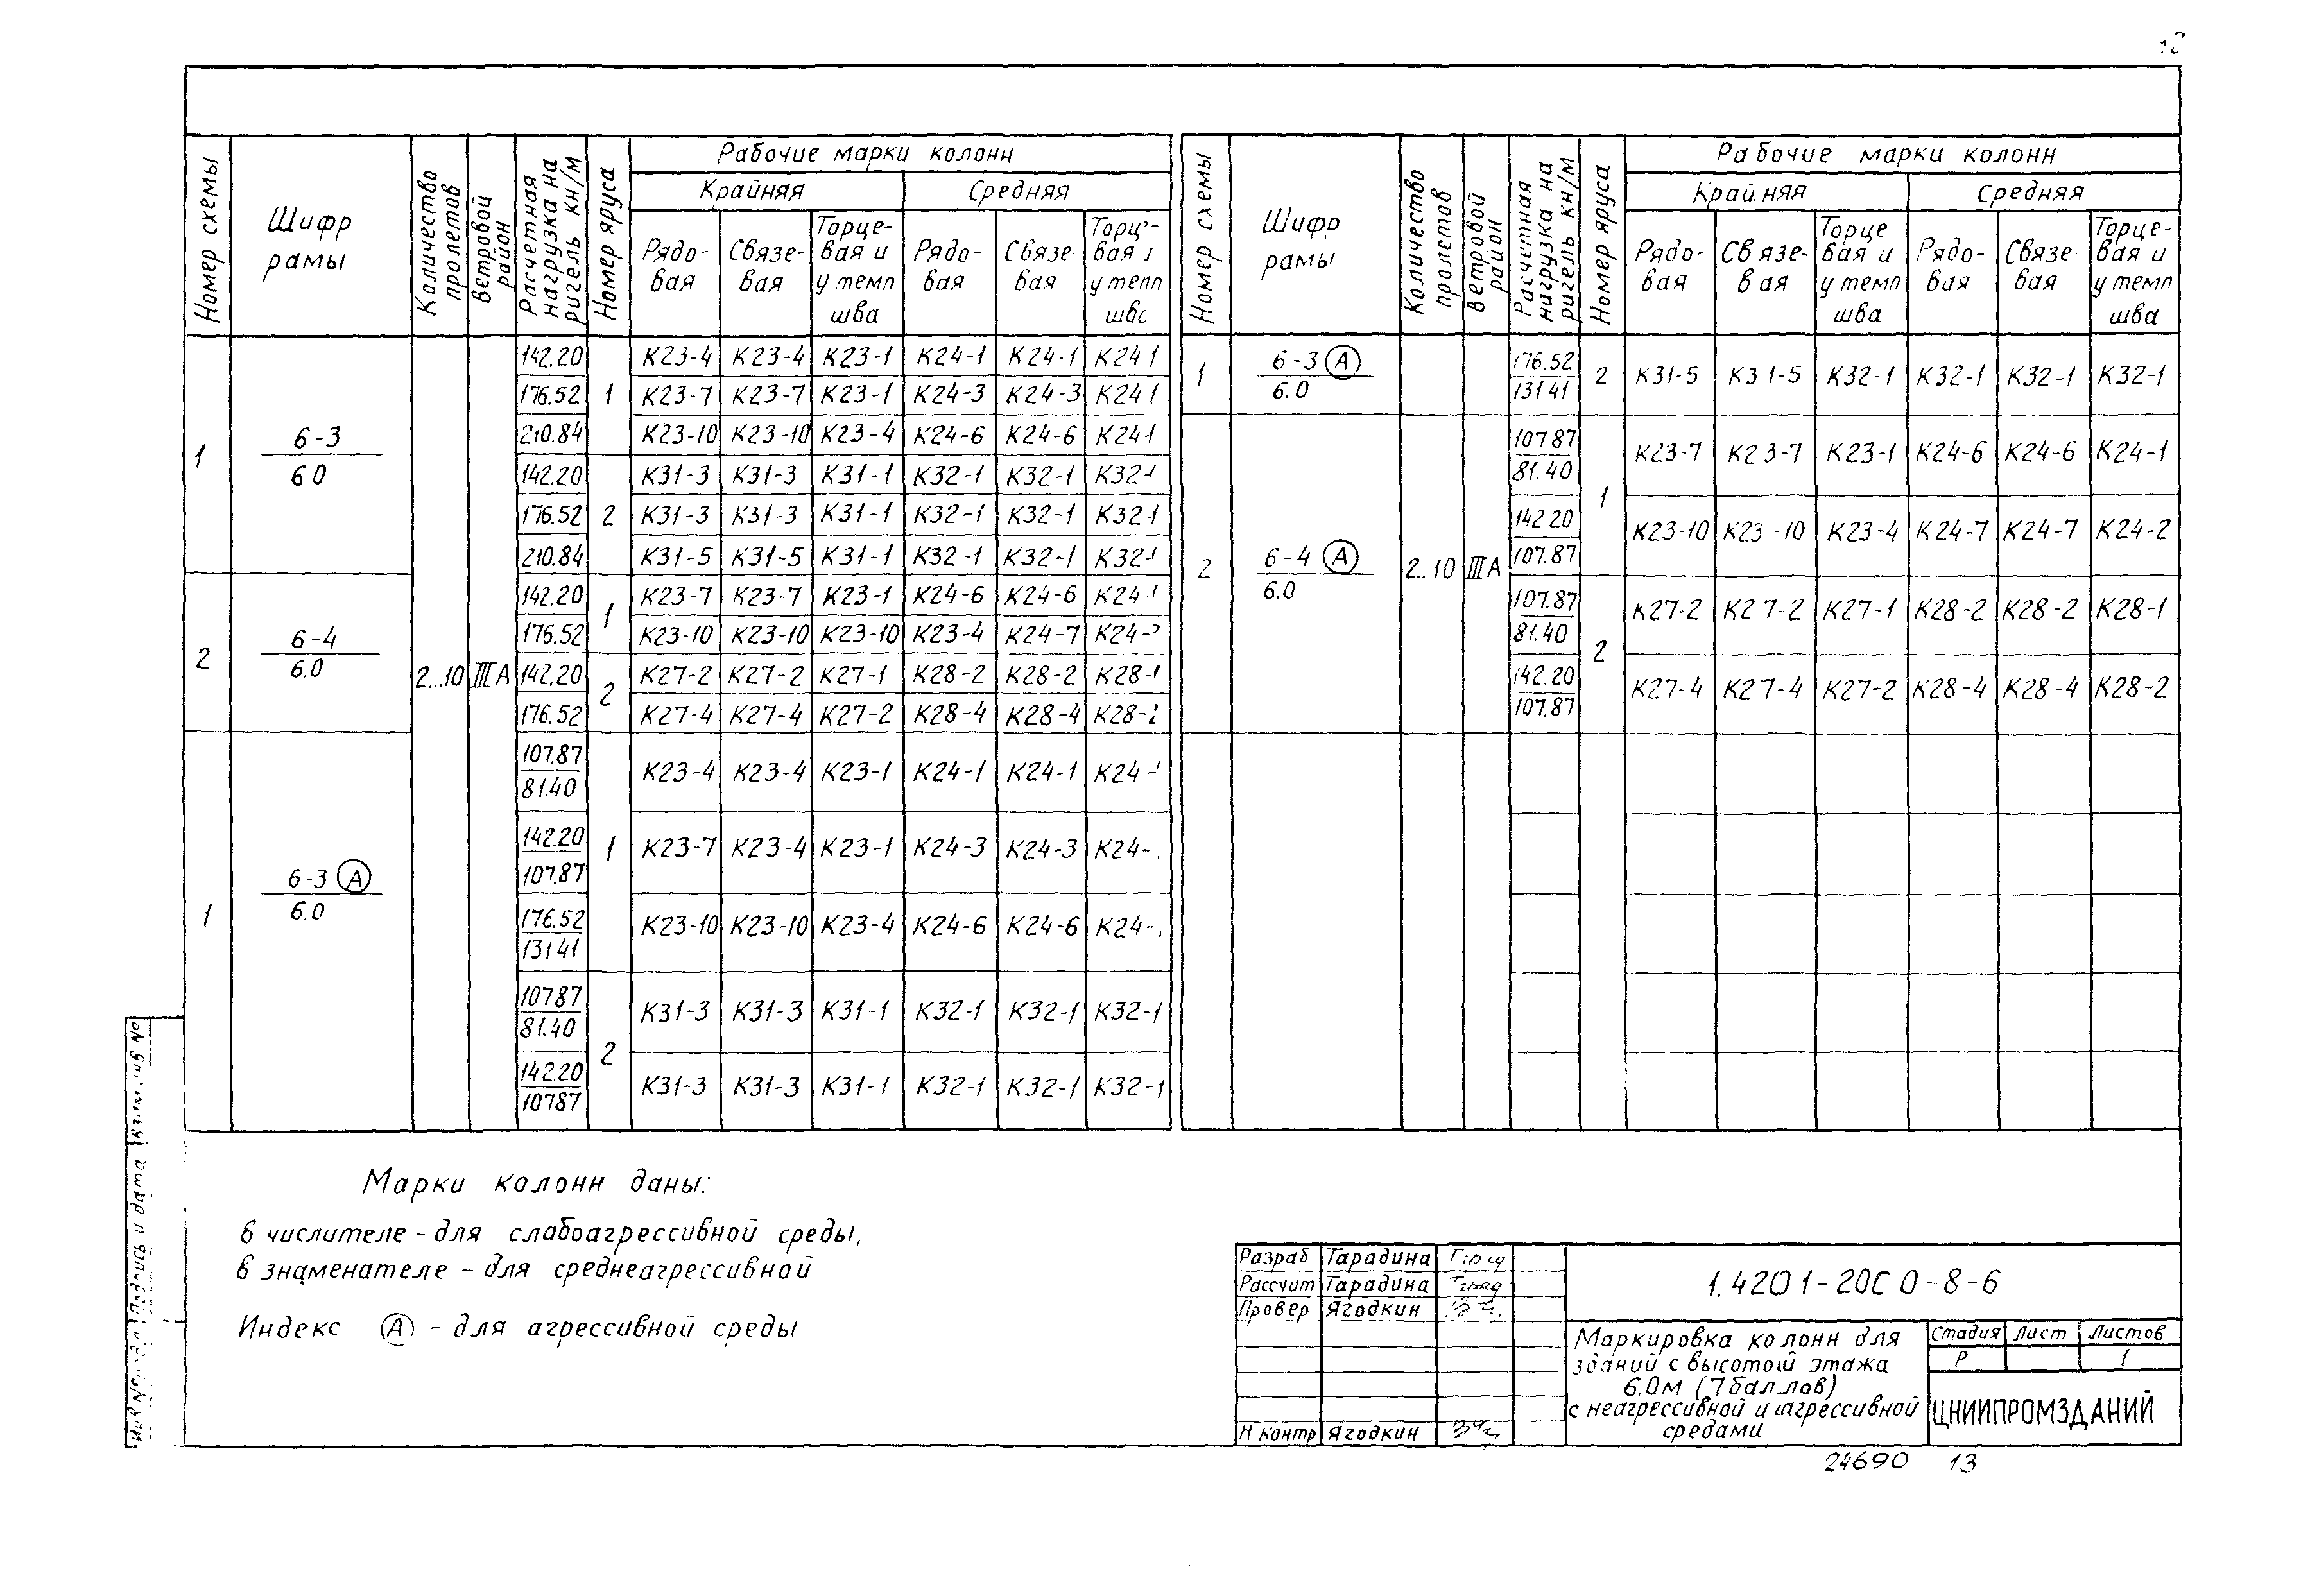 Номер схемы
Шифр рамы
Количество пролетов
Ветровой район
Расчетная нагрузка на ригель кн/м
Номер яруса
Рабочие марки колонн
Крайняя Средняя
Рядовая Связевая Торцевая и у темп шва Рядовая Связевая у темп
1 6-3 6.0 2...10 IIIА
142.20 1 К23-4 К23-4 К23-1 К24-1 К24-1 К24 1
176.52 К23-7 К23-7 К23-1 К24-3 К24-3 К24 1
210.84 К23-10 К23-10 К23-4 К24-6 К24-6 К24-1
142.20 2 К31-3 К31-3 К31-1 К32-1 К32-1 К32-1
176.52 К31-3 К31-3 К31-1 К32-1 К32-1 К32-1
210.84 К31-5 К31-5 К31-1 К32-1 К32-1 К32-1
2 6-4 6.0
142.20 1 К23-7 К23-7 К23-1 К24-6 К24-6 К24-1
176.52 К23-10 К23-10 К23-10 К23-4 К24-7
142.20 2 К27-2 К27-2 К27-1 К28-2 К28-2 К28-1
176.52 К27-4 К27-4 К27-2 К28-4 К28-4 К28-2
1 6-3 (А) 6.0
107.87 81.40 1 К23-4 К23-4 К23-1 К24-1 К24-1 К24-1
142.20 107.87 К23-7 К23-4 К23-1 К24-3 К24-3
176.52 131 41 К23-10 К23-10 К23-4 К24-6 К24-6
107 87 81.40 2 К31-3 К31-3 К31-1 К32-1 К32-1 К32-1
142.20 107 87 К31-3 К31-3 К31-1 К32-1 К32-1 К32-1
Номер схемы
Шифр рамы
Количество пролетов
Ветровой район
Расчетная нагрузка на ригель кн/м
Номер яруса
Рабочие марки колонн
Крайняя Средняя
Рядовая Связевая Торцевая и у темп шва Рядовая Связевая Торцевая и у темп шва
1 6-3 (А) 6.0 176.52 131 41 2 К31-5 К31-5 К32-1 К32-1 К32-1 К32-1
2 6-4 (А) 6.0 2..10 IIIА
107 87 81.40 1 К23-7 К23-7 К23-1 К24-6 К24-6 К24-1
142 20 107.87 К23-10 К23-10 К23-4 К24-7 К24-7 К24-2
107.87 81.40 2 К27-2 К27-2 К27-1 К28-2 К28-2 К28-1
142.20 107.87 К27-4 К27-4 К27-2 К28-4 К28-4 К28-2
Марки колонн даны:
в числителе - для слабоагрессивной среды,
в знаменателе - для среднеагрессивной
Индекс (А) - для агрессивной среды
Разраб Тарадина
Рассчит Тарадина
Провер Ягодкин
Н контр Ягодкин
1.420 1-20С 0-8-6
Маркировка колонн для
зданий с высотой этажа
6.0м (7 баллов)
с неагрессивной и агрессивной
средами
Стадия Лист Листов
Р 1
ЦНИИПРОМЗДАНИЙ
24690 13